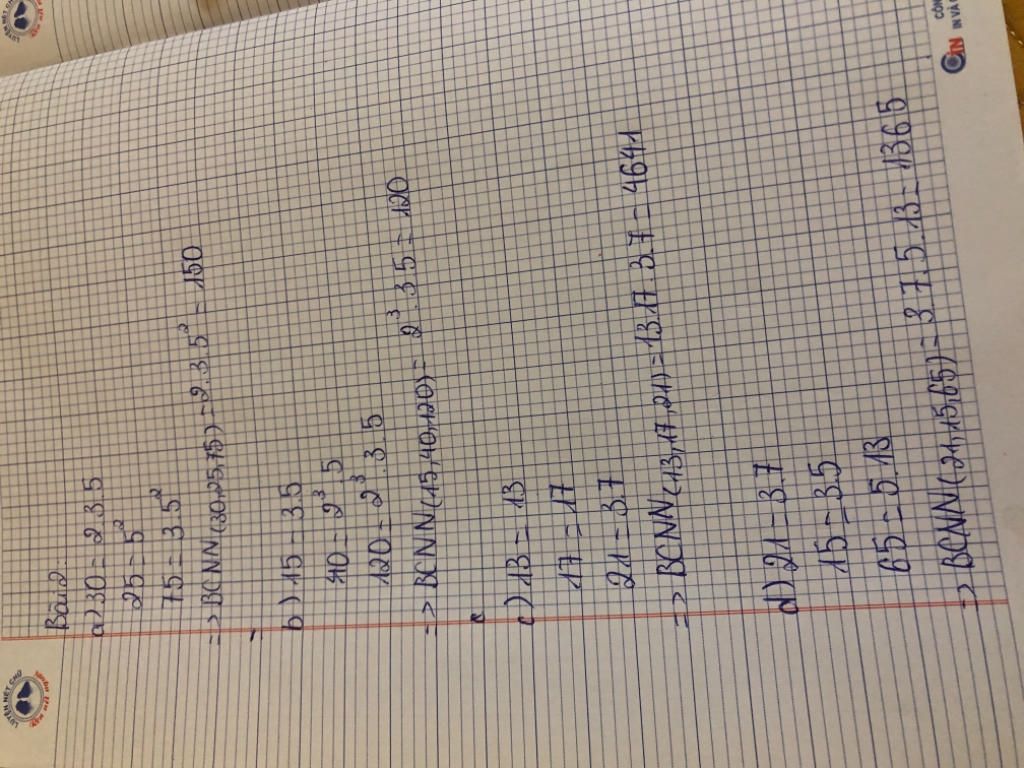 Bài 2:
a) 30 = 2.3.5
25 = 5²
75 = 3.5²
=> BCNN(30,25,75) = 2.3.5² = 150
b) 15 = 3.5
40 = 2³.5
120 = 2³.3.5
=> BCNN(15,40,120) = 2³.3.5 = 120
c) 13 = 13
17 = 17
21 = 3.7
=> BCNN(13,17,21) = 13.17.3.7 = 4641
d) 21 = 3.7
15 = 3.5
65 = 5.13
=> BCNN(21,15,65) = 3.7.5.13 = 1365
LUYỆN NÉT CHỮ
CÔNG
IN VÀ